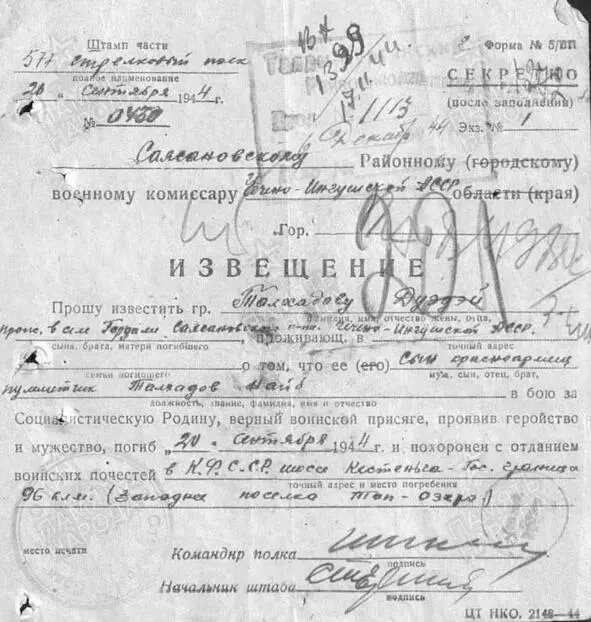 Штамп части
577 стрелковый полк
полное наименование
20 " Сентября 1944 г.
№ 0430
Форма № 5/БП
СЕКРЕТНО
(после заполнения)
Экз. № 1
1113
Декабр 44
Саясановскому Районному (городскому)
военному комиссару Чечено-Ингушской АССР области (края)
Гор.
ИЗВЕЩЕНИЕ
Прошу известить гр. Талхадову
фамилия, имя, отчество жены, отца,
прож. в сел Гордали Саясановского Чечено-Ингушской АССР.
сына, брата, матери погибшего
проживающ. в
точный адрес
семьи погибшего
о том, что ее (его) Сын красноармеец
муж, сын, отец, брат,
пулеметчик Талхадов в бою за
должность, звание, фамилия, имя и отчество
Социалистическую Родину, верный воинской присяге, проявив геройство
и мужество, погиб „20 " Сентября 1944 г. и похоронен с отданием
воинских почестей в К.Ф.С.СР. шоссе Кестеньга - Гос. граница
точный адрес и место погребения
96 клм. (Западнее поселка Топ-Озеро)
место печати
Командир полка
подпись
Начальник штаба
подпись
ЦТ НКО. 2148—44